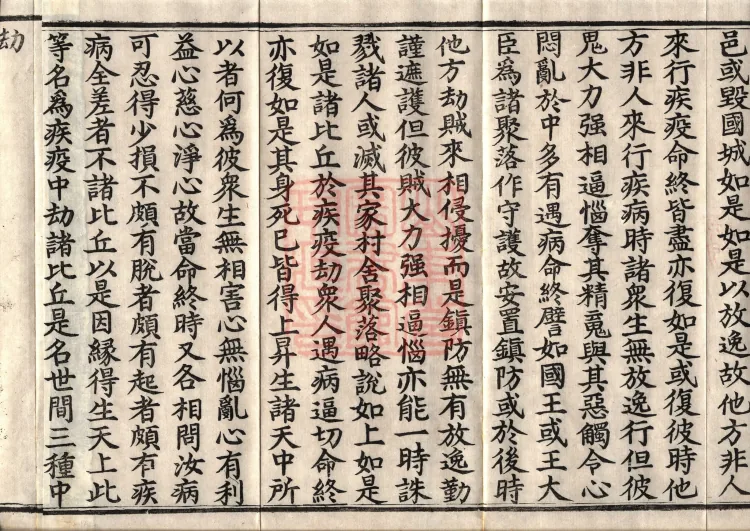 邑或毀國城如是如是以放逸故他方非人
來行疾疫命終皆盡亦復如是或復彼時他
方非人來行疾病時諸衆生無放逸行但彼
鬼大力强相逼惱奪其精䰟與其惡觸令心
悶亂於中多有遇病命終譬如國王或王大
臣爲諸聚落作守護故安置鎮防或於後時
他方劫賊來相侵擾而是鎮防無有放逸勤
謹遮護但彼賊大力强相逼惱亦能一時誅
戮諸人或滅其家村舍聚落略說如上如是
如是諸比丘於疾疫劫衆人遇病逼切命終
亦復如是其身死已皆得上昇生諸天中所
以者何爲彼衆生無相害心無惱亂心有利
益心慈心淨心故當命終時又各相問汝病
可忍得少損不頗有脫者頗有起者頗有疾
病全差者不諸比丘以是因緣得生天上此
等名爲疾疫中劫諸比丘是名世間三種中
劫